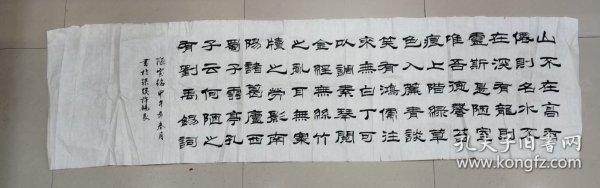 山不在高有
僊則名水不
在深有龍則
靈斯是陋室
唯吾德馨苔
痕上階綠草
色入簾青談
笑有鴻儒往
來無白丁可
以調素琴閱
金經無絲竹
之亂耳無案
牘之勞形南
陽諸葛廬西
蜀子雲亭孔
子云何陋之
有劉禹錫詞
陋室銘甲午年春月
書於深圳
孔夫子旧书网
www.kongfz.com